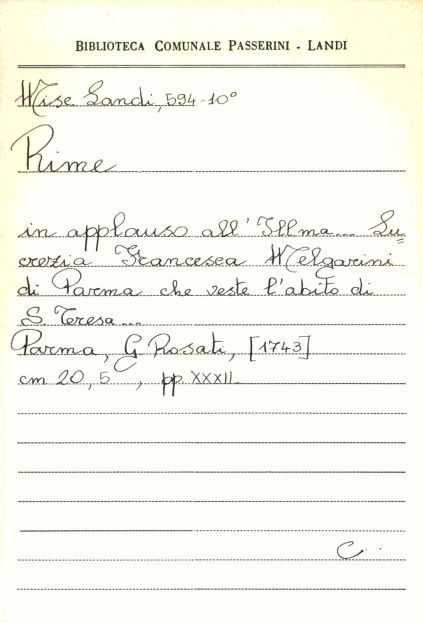 BIBLIOTECA COMUNALE PASSERINI - LANDI
Misc Landi, 594-10°
Rime
in applauso all'Illma... Lu=
crezia Francesca Melgarini
di Parma che veste l'abito di
S. Teresa...
Parma, G Rosati, [1743]
cm 20,5 , pp. XXXII.
C.